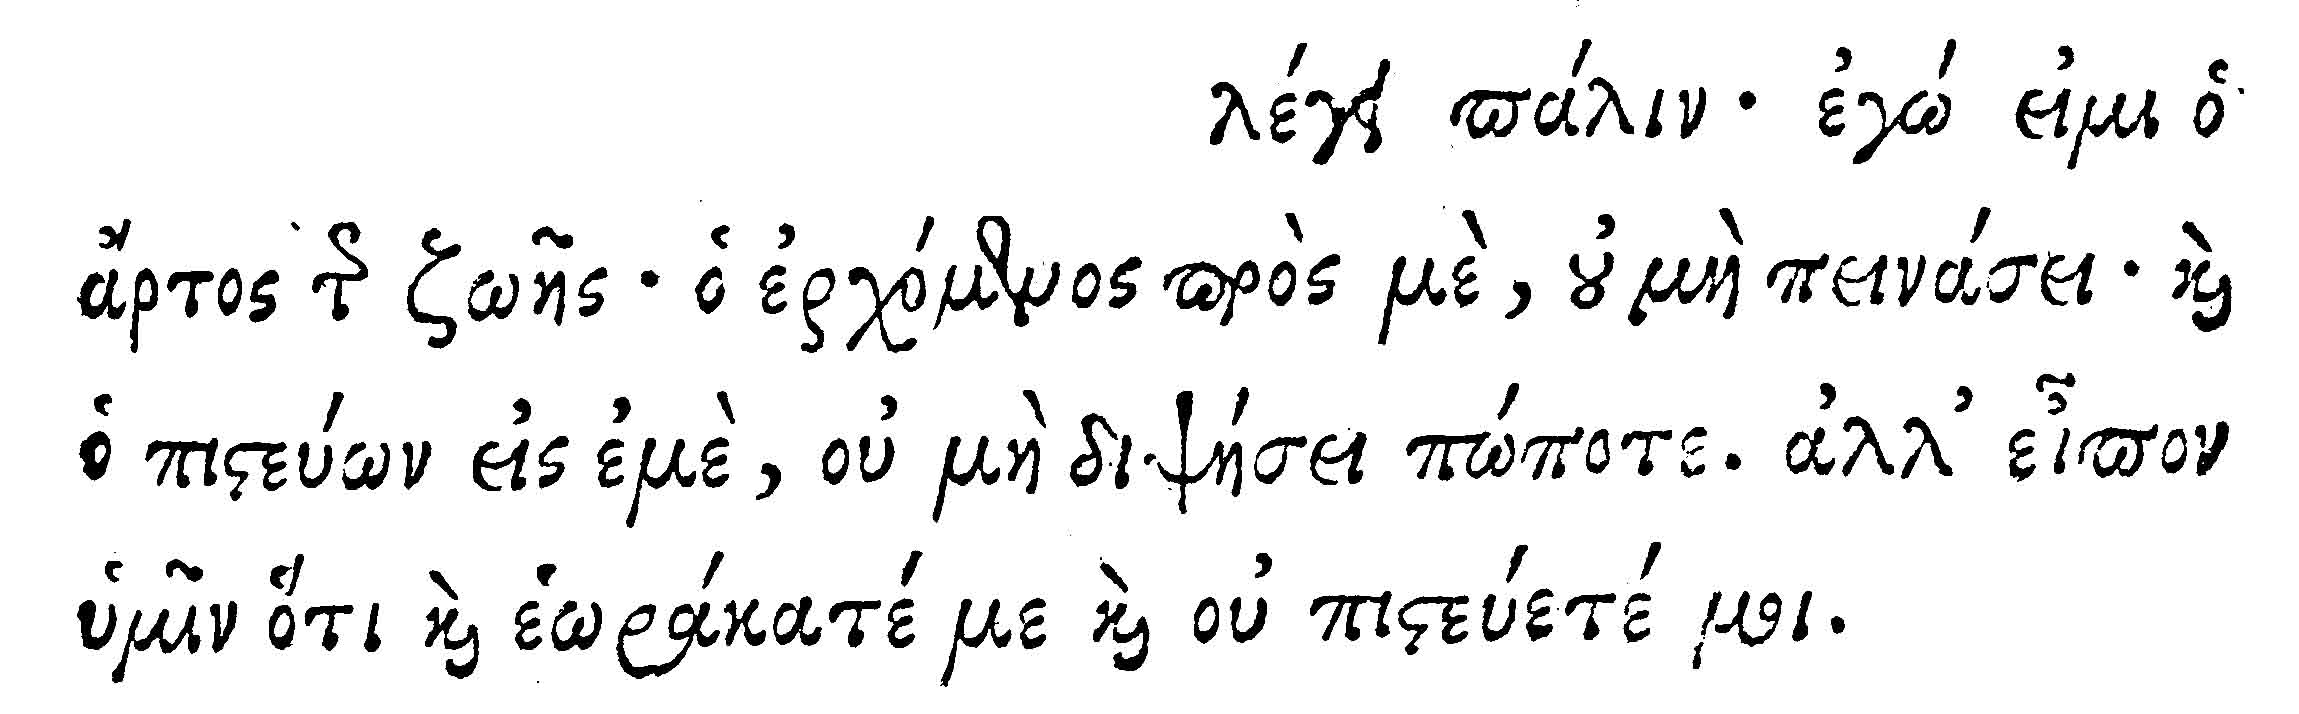 λέγει πάλιν· ἐγώ εἰμι ὁ
ἄρτος τῆς ζωῆς· ὁ ἐρχόμενος πρὸς μὲ, οὐ μὴ πεινάσει· καὶ
ὁ πιστεύων εἰς ἐμὲ, οὐ μὴ διψήσει πώποτε. ἀλλ' εἶπον
ὑμῖν ὅτι καὶ ἑωράκατέ με καὶ οὐ πιστεύετέ μοι.